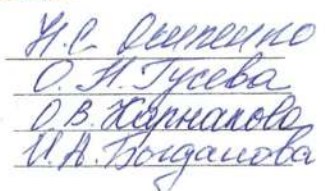 Н.С. Осипенко
О.Н. Гусева
О.В. Карнахова
И.А. Богданова